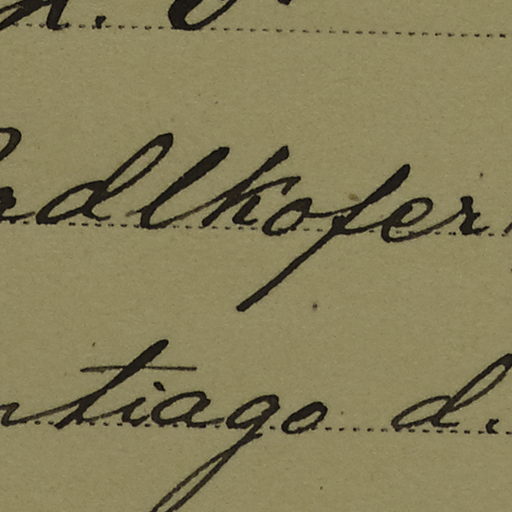 adlkofer
ntiago d.